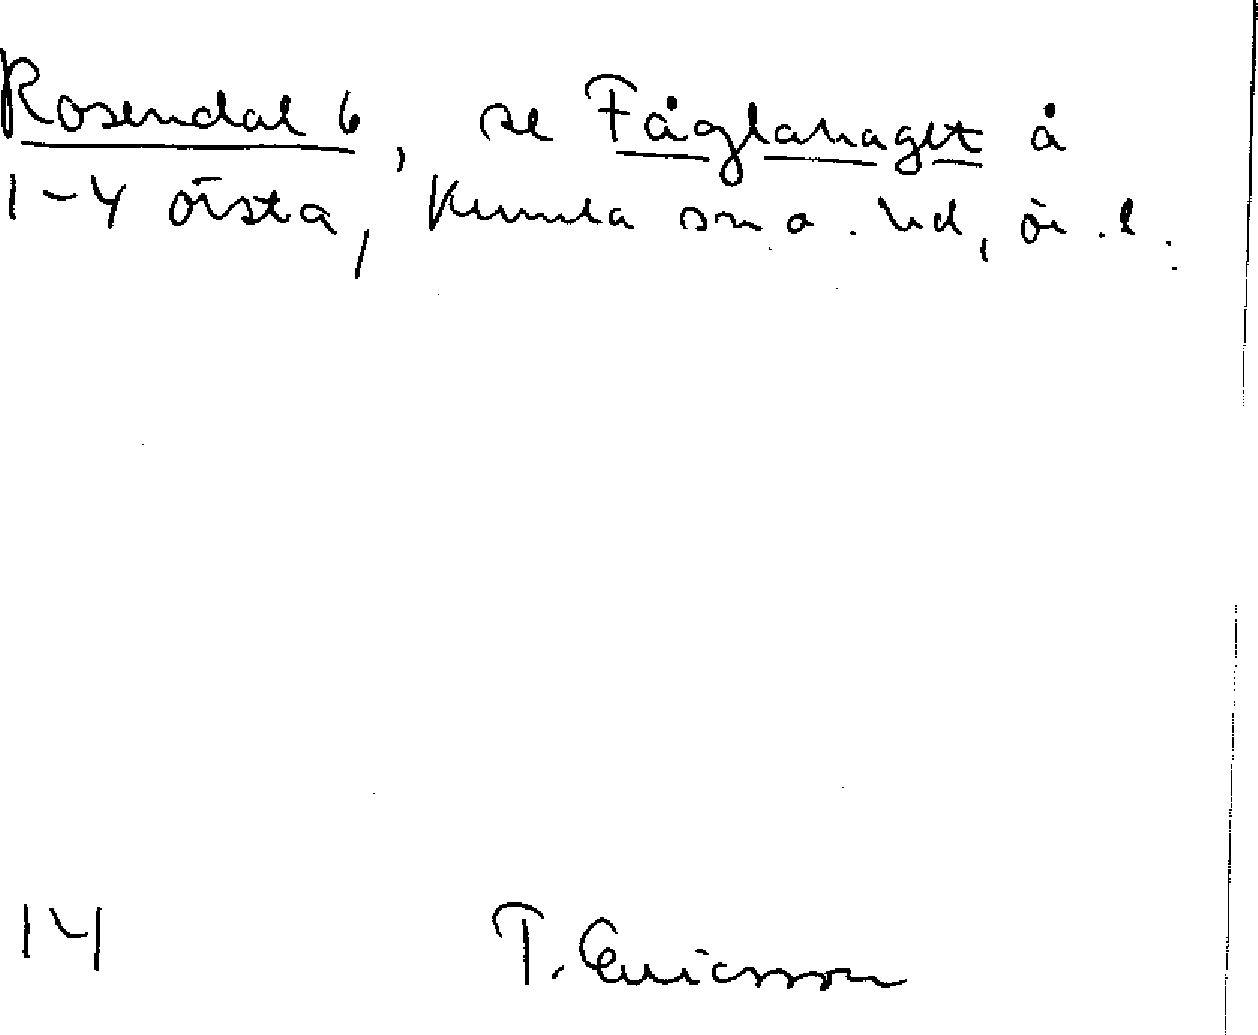 Rosendal 6, se Fåglahaget å
1-4 Örsta, Kumla sn o. hd, ör. l.
14 T. Ericsson